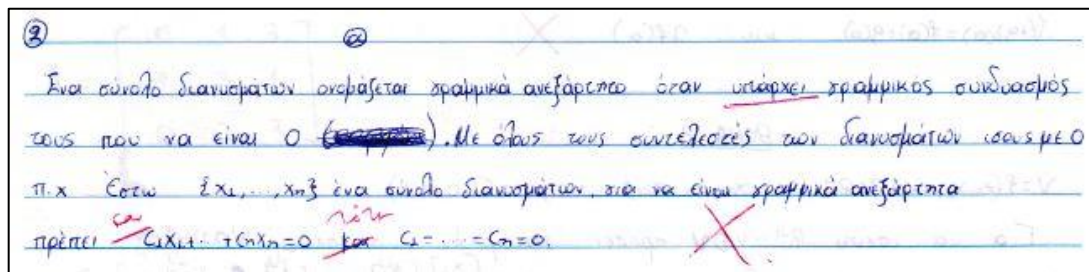 ② ⓐ
Ένα σύνολο διανυσμάτων ονομάζεται γραμμικά ανεξάρτητο όταν υπάρχει γραμμικός συνδυασμός
τους που να είναι 0 ( ). Με όλους τους συντελεστές των διανυσμάτων ίσους με 0
π.χ Έστω {x₁,...,xₙ} ένα σύνολο διανυσμάτων, για να είναι γραμμικά ανεξάρτητα
αν τότε
πρέπει C₁x₁+...+Cₙxₙ=0 και C₁=...=Cₙ=0.